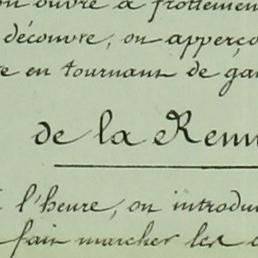 on ouvre à frottemen
découvre, on apperço
e en tournant de ga
de la Rem
l'heure, on introdu
fait marcher les